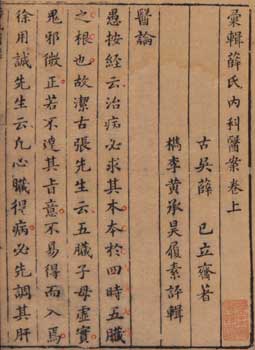 彙輯薛氏內科醫案卷上
古吳薛 已立齋著
檇李黃承昊履素評輯
醫論
愚按經云治病必求其本本於四時五臟
之根也故潔古張先生云五臟子母虛實
鬼邪微正若不達其旨意不易得而入焉
徐用誠先生云凡心臟得病必先調其肝